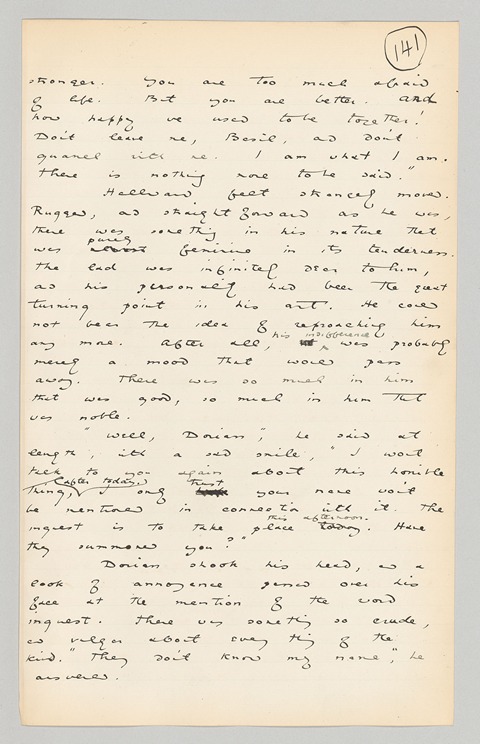 141
stronger. You are too much afraid
of life. But you are better. And
how happy we used to be together!
Don't leave me, Basil, and don't
quarrel with me. I am what I am.
There is nothing more to be said."
Hallward felt strangely moved.
Rugged, and straightforward as he was,
there was something in his nature that
purely
was almost feminine in its tenderness.
The lad was infinitely dear to him,
and his personality had been the great
turning point in his art. He could
not bear the idea of reproaching him
his indifference
any more. After all, was probably
merely a mood that would pass
away. There was so much in him
that was good, so much in him that
was noble.
"Well, Dorian", he said at
length, with a sad smile, "I won't
talk to you again about this horrible
after today. trust
thing, I only your name won't
be mentioned in connection with it. The
this afternoon.
inquest is to take place today. Have
they summoned you?"
Dorian shook his head, and a
look of annoyance passed over his
face at the mention of the word
inquest. There was something so crude,
and vulgar about every thing of the
kind. "They don't know my name", he
answered.